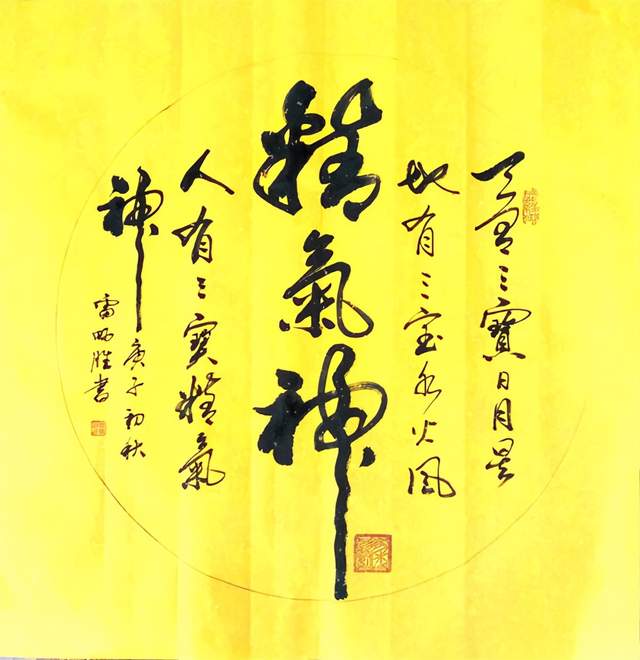 天有三寶日月星
地有三宝水火風
精氣神
人有三寶精氣
神
庚子初秋
雷胜書